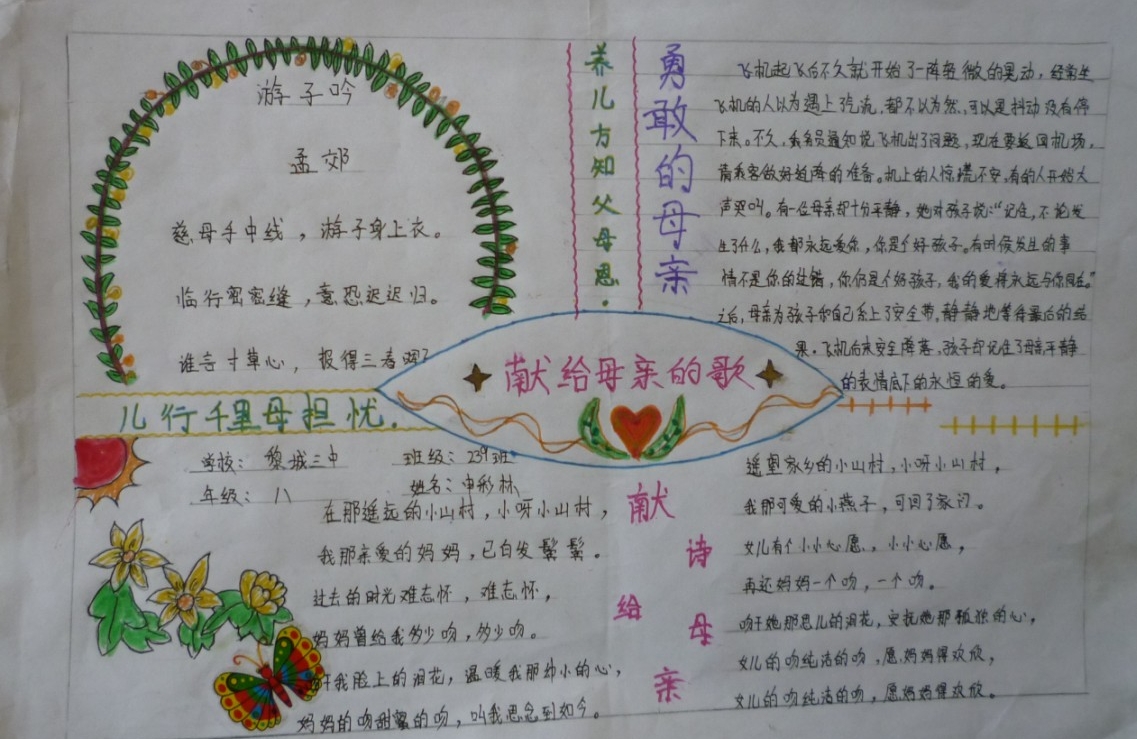 游子吟
孟郊
慈母手中线，游子身上衣。
临行密密缝，意恐迟迟归。
谁言寸草心，报得三春晖？
养儿方知父母恩.
勇敢的母亲
飞机起飞后不久就开始了一阵轻微的晃动，经常坐
飞机的人以为遇上气流，都不以为然，可以是抖动没有停
下来。不久，乘务员通知说飞机出了问题，现在要返回机场，
请乘客做好迫降的准备。机上的人惊慌不安，有的人开始大
声哭叫。有一位母亲却十分平静，她对孩子说：“记住，不论发
生了什么，我都永远爱你，你是个好孩子。有时候发生的事
情不是你的过错，你仍是个好孩子，我的爱将永远与你同在。”
之后，母亲为孩子和自己系上了安全带，静静地等待最后的结
果。飞机后来安全降落，孩子却记住了母亲平静
的表情底下的永恒的爱。
献给母亲的歌
儿行千里母担忧.
学校：黎城三中 班级：239班
年级：八 姓名：申彩林
献诗给母亲
在那遥远的小山村，小呀小山村，
我那亲爱的妈妈，已白发鬓鬓。
过去的时光难忘怀，难忘怀，
妈妈曾给我多少吻，多少吻。
吻干我脸上的泪花，温暖我那幼小的心，
妈妈的吻甜蜜的吻，叫我思念到如今。
遥望家乡的小山村，小呀小山村，
我那可爱的小燕子，可回了家门。
女儿有个小小心愿，小小心愿，
再还妈妈一个吻，一个吻。
吻干她那思儿的泪花，安抚她那孤独的心，
女儿的吻纯洁的吻，愿妈妈得欢欣，
女儿的吻纯洁的吻，愿妈妈得欢欣。